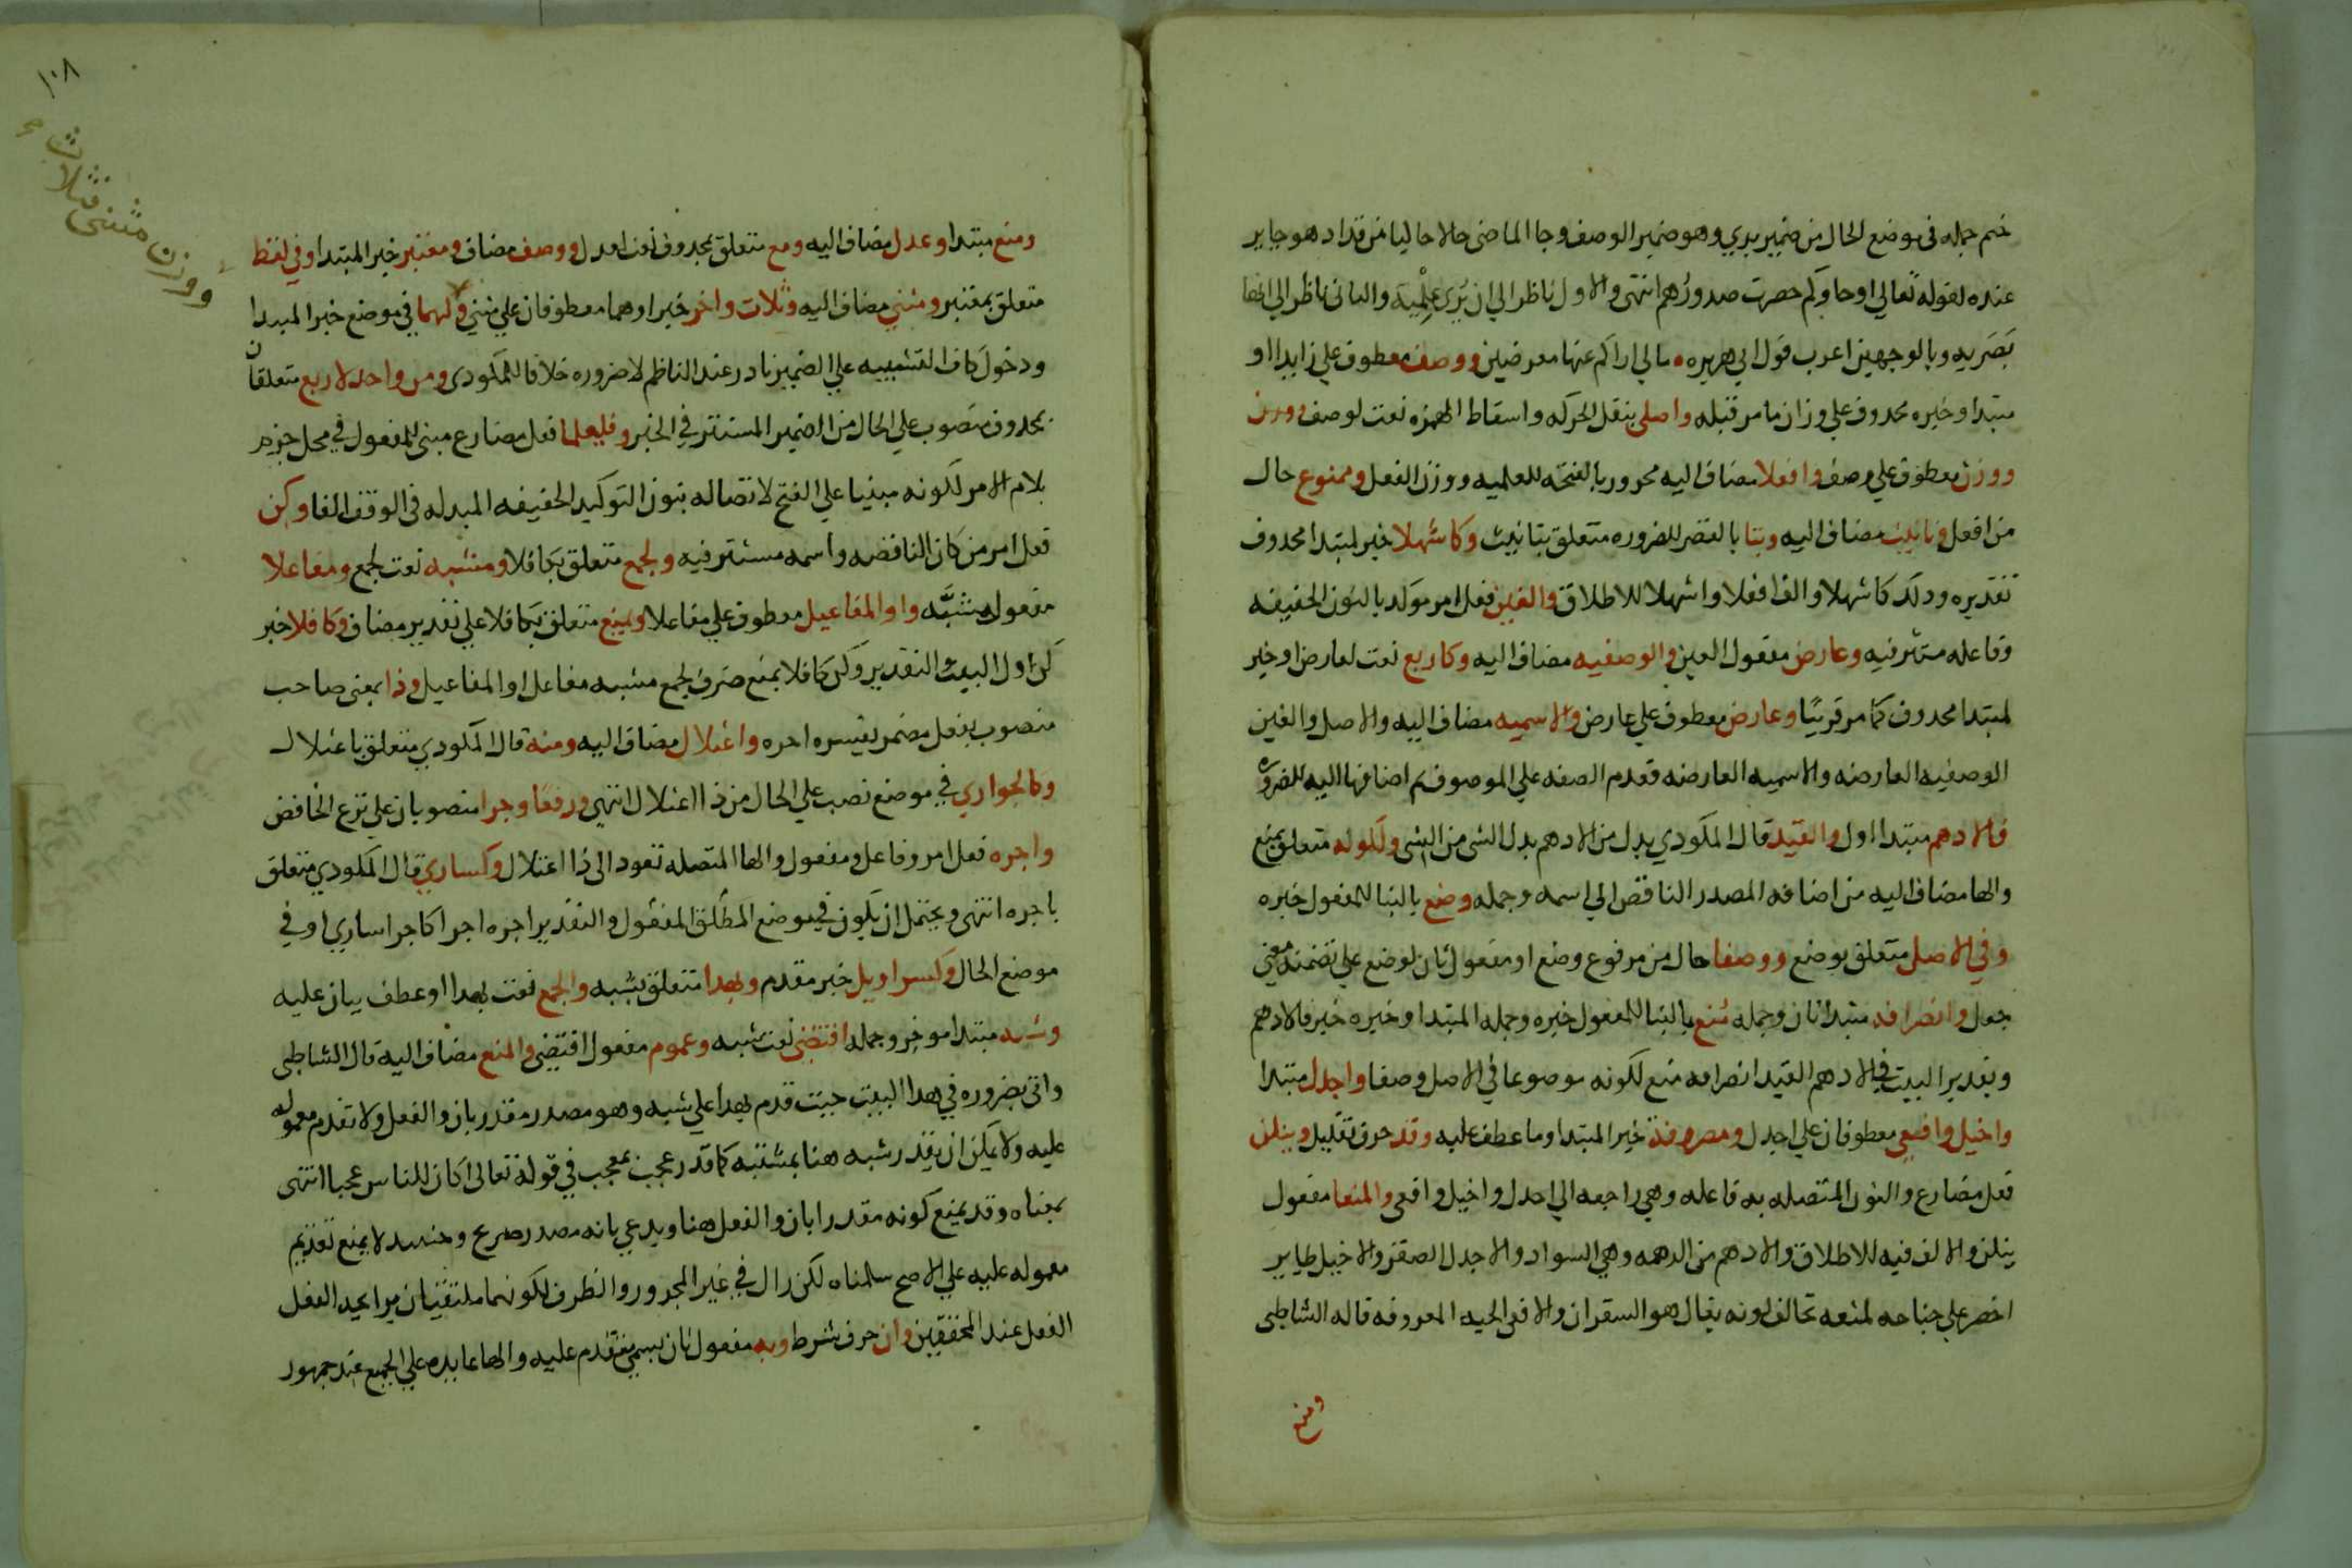 ختم جمله فى موضع الحال من ضمير يدي وهو ضمير الوصف وجا الماضى حالا خاليا من قد اد هو جاير
عنده لقوله تعالى او جاوكم حصرت صدورهم انتهى والاول ناظر الي ان يُرى عِلْمية والثانى ناظر الي انها
بَصَريه وبالوجهين اعرب قول ابي هريره مالي اراكم عنها معرضين ووصف معطوف علي زايدا او
مبتدا وخبره محدوف علي وزان ما مر قبله واصلي بنقل الحركه واسقاط الهمزه نعت لوصف ووزن
ووزن معطوف علي وصف وافعلا مضاف اليه مجرور بالفتحه للعلميه ووزن الفعل وممنوع حال
من افعل وتانيث مضاف اليه وبتا بالقصر للضروره متعلق بتانيث وكاشهلا خبر لمبتدا محدوف
تقديره ودلك كاشهلا والف افعلا واشهلا للاطلاق والغين فعل امر موكد بالنون الخفيفه
وفاعله مستتر فيه وعارض مفعول الغين والوصفيه مضاف اليه وكاربع نعت لعارض او خبر
لمبتدا محدوف كما مر قريبًا وعارض معطوف علي عارض والاسميه مضاف اليه والاصل والغين
الوصفيه العارضه والاسميه العارضه فقدم الصفه علي الموصوف ثم اضافها اليه للضروره
فالادهم مبتدا اول والقيد قال المكودي بدل من الادهم بدل الشي من الشي ولكونه متعلق بمنع
والها مضاف اليه من اضافه المصدر الناقص الي اسمه وجمله وضع بالبنا للمفعول خبره
وفي الاصل متعلق بوضع ووصفا حال من مرفوع وضع او مفعول ثان لوضع علي تضمنه معني
جعل وانصرافه مبتدا ثان وجمله مُنع بالبنا للمفعول خبره وجمله المبتدا وخبره خبر فالادهم
وتقدير البيت فالادهم القيد انصرافه منع لكونه موضوعا في الاصل وصفا واجدل مبتدا
واخيل وافعي معطوفان علي اجدل ومصروفة خبر المبتدا وما عطف عليه وقد حرف تقليل وينلن
فعل مضارع والنون المتصله به فاعله وهي راجعه الي اجدل واخيل وافعي والمنعا مفعول
ينلن والالف فيه للاطلاق والادهم من الدهمه وهي السواد والاجدل الصقر والاخيل طاير
اخضر علي جناحه لمعه تخالف لونه يقال هو السقران والافعي الحيه المعروفه قاله الشاطبى
ومنع
١٠٨
ووزن مثنى وثلاث
ومنع مبتدا وعدل مضاف اليه ومع متعلق بمحدوف نعت لعدل ووصف مضاف ومعتبر خبر المبتدا وفي لفظ
متعلق بمعتبر ومثني مضاف اليه وثلاث واخر خبرا وهما معطوفان علي مثني ولهما في موضع خبر المبتدا
ودخول كاف التشبيه علي الضمير نادر عند الناظم لا ضروره خلافا للمكودي ومن واحد لاربع متعلقان
بمحدوف منصوب علي الحال من الضمير المستتر في الخبر وفليعلما فعل مضارع مبنى للمفعول في محل جزم
بلام الامر لكونه مبنيا علي الفتح لاتصاله بنون التوكيد الخفيفه المبدله فى الوقف الفا وكن
فعل امر من كان الناقصه واسمه مستتر فيه ولجمع متعلق بكافلا ومشبه نعت لجمع ومفاعلا
مفعول مشبَّه واو المفاعيل معطوف علي مفاعلا وبمنع متعلق بكافلا علي تقدير مضاف وكافلا خبر
كن اول البيت والتقدير وكن كافلا بمنع صرف لجمع مشبه مفاعل او المفاعيل وذا بمعنى صاحب
منصوب بفعل مضمر يفسره اجره واعتلال مضاف اليه ومنه قال المكودي متعلق باعتلال
وكالجواري في موضع نصب علي الحال من ذا اعتلال انتهى ورفعًا وجرا منصوبان علي نزع الخافض
واجره فعل امر وفاعل ومفعول والها المتصله تعود الى ذا اعتلال وكساري قال المكودي متعلق
باجره انتهى ويحتمل ان يكون في موضع المطلق المفعول والتقدير اجره اجرا كاجرا ساري او في
موضع الحال ولسراويل خبر مقدم وبهدا متعلق بشبه والجمع نعت لهدا او عطف بيان عليه
وشبه مبتدا موخر وجمله اقتضى نعت شبه وعموم مفعول اقتضى والمنع مضاف اليه قال الشاطبى
واتى بضروره في هدا البيت حيث قدم بهدا علي شبه وهو مصدر مقدر بان والفعل ولا تقدم معموله
عليه ولا يمكن ان يقدر شبه هنا بمشتبه كما قدر عجب بمعجب في قوله تعالى اكان للناس عجبا انتهى
بمعناه وقد يمنع كونه مقدرا بان والفعل هنا ويدعي بانه مصدر صريح وحينيد لا يمنع تقديم
معموله عليه علي الاصح سلمناه لكن دال في غير المجرور والظرف لكونهما ملتفيان برايحه الفعل
الفعل عند المحققين وان حرف شرط وبه مفعول ثان بسمي تقدم عليه والها عايده علي الجمع عند جمهور